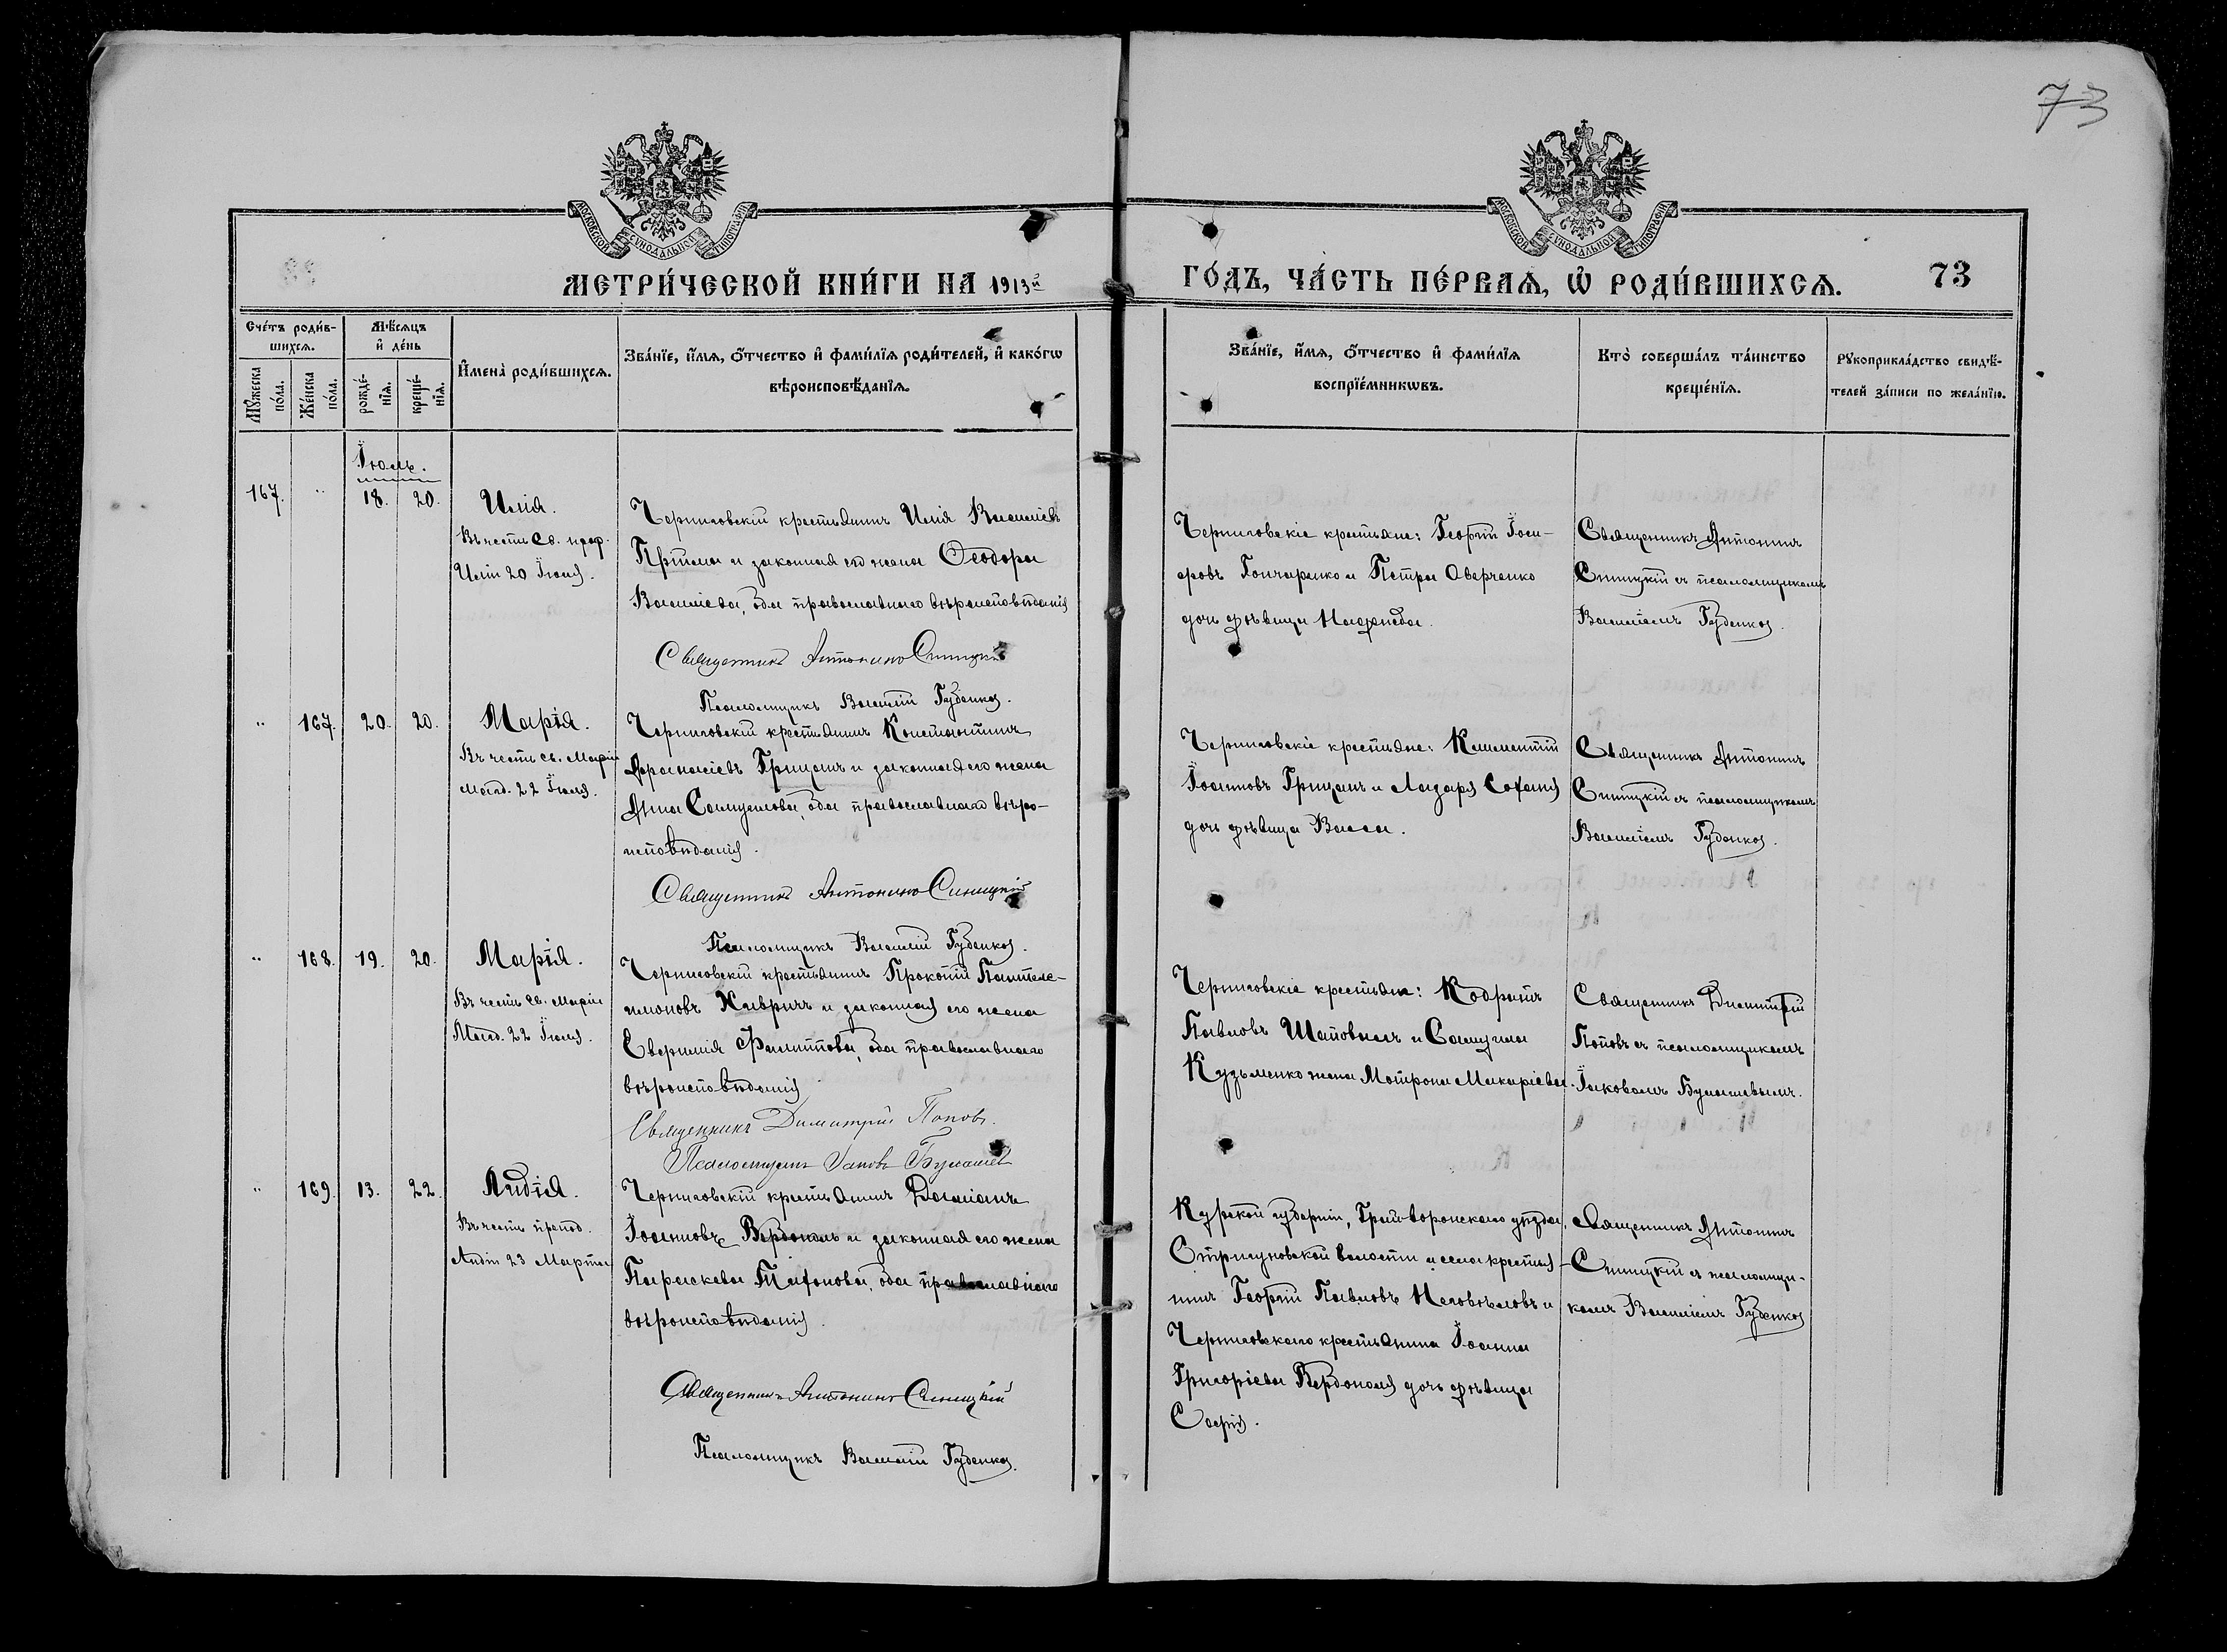 73
МОСКОВСКОЙ СѴНОДАЛЬНОЙ ТИПОГРАФІИ
МОСКОВСКОЙ СѴНОДАЛЬНОЙ ТИПОГРАФІИ
МЕТРИ́ЧЕСКОЙ КНИ́ГИ НА 1913й
ГО́ДЪ, ЧА́СТЬ ПЕ́РВАѦ, Ѡ҆ РОДИ́ВШИХСѦ.
73
Сче́тъ роди́в-
шихсѧ.
Мѣ́сѧцъ
и҆ де́нь
Мꙋ́жеска
по́ла.
Же́нска
по́ла.
рожде́-
нїѧ.
креще́-
нїѧ.
И҆мена̀ роди́вшихсѧ.
Зва́нїе, и҆́мѧ, ѻ҆́тчество и҆ фами́лїѧ роди́телей, и҆ како́гѡ
вѣроисповѣ́данїѧ.
Зва́нїе, и҆́мѧ, ѻ҆́тчество и҆ фами́лїѧ
воспрїе́мникѡвъ.
Кто̀ соверша́лъ та́инство
креще́нїѧ.
Рꙋкоприкла́дство свидѣ́-
телей за́писи по жела́нїю.
Іюль.
167. " 18. 20.
Илія.
Въ честь св. прор.
Иліи 20 Іюля.
Черниговскій крестьянинъ Илія Василіевъ
и законная его жена Ѳеодора
Василіева, оба православнаго вѣроисповѣданія
Священникъ Антонинъ Синицкій
Псаломщикъ Василій Губенко.
Черниговскіе крестьяне: Георгій Іоси-
фовъ Гончаренко и Петра Аверченко
дочь дѣвица
Священникъ Антонинъ
Синицкій съ псаломщикомъ
Василіемъ Губенко.
" 167. 20. 20.
Марія.
Въ честь св. Маріи
Магд. 22 Іюля.
Черниговскій крестьянинъ Константинъ
Аѳанасіевъ Грицанъ и законная его жена
Анна Самуилова, оба православнаго вѣро-
исповѣданія.
Священникъ Антонинъ Синицкій
Псаломщикъ Василій Губенко.
Черниговскіе крестьяне: Климентій
Іоанновъ Грицанъ и Лазаря Сохань
дочь дѣвица Васса.
Священникъ Антонинъ
Синицкій съ псаломщикомъ
Василіемъ Губенко.
" 168. 19. 20.
Марія.
Въ честь св. Маріи
Магд. 22 Іюля.
Черниговскій крестьянинъ Прокопій Пантеле-
имоновъ и законная его жена
Евфимія Филиппова, оба православнаго
вѣроисповѣданія
Священникъ Димитрій Поповъ.
Псаломщикъ Іаковъ
Черниговскіе крестьяне: Кодратъ
Павловъ Шаповалъ и Самуила
Кузьменко жена Матрона Макаріева.
Священникъ Димитрій
Поповъ съ псаломщикомъ
Іаковомъ
" 169. 13. 22.
Лидія.
Въ честь препод.
Лидіи 23 Марта
Черниговскій крестьянинъ Даміанъ
Іоанновъ и законная его жена
Параскева оба православнаго
вѣроисповѣданія.
Священникъ Антонинъ Синицкій
Псаломщикъ Василій Губенко.
Курской губерніи, Грайворонскаго уѣзда,
Стригуновской волости и села крестья-
нинъ Георгій Павловъ и
Черниговскаго крестьянина Іоанна
Григоріева дочь дѣвица
Софія.
Священникъ Антонинъ
Синицкій съ псаломщи-
комъ Василіемъ Губенко